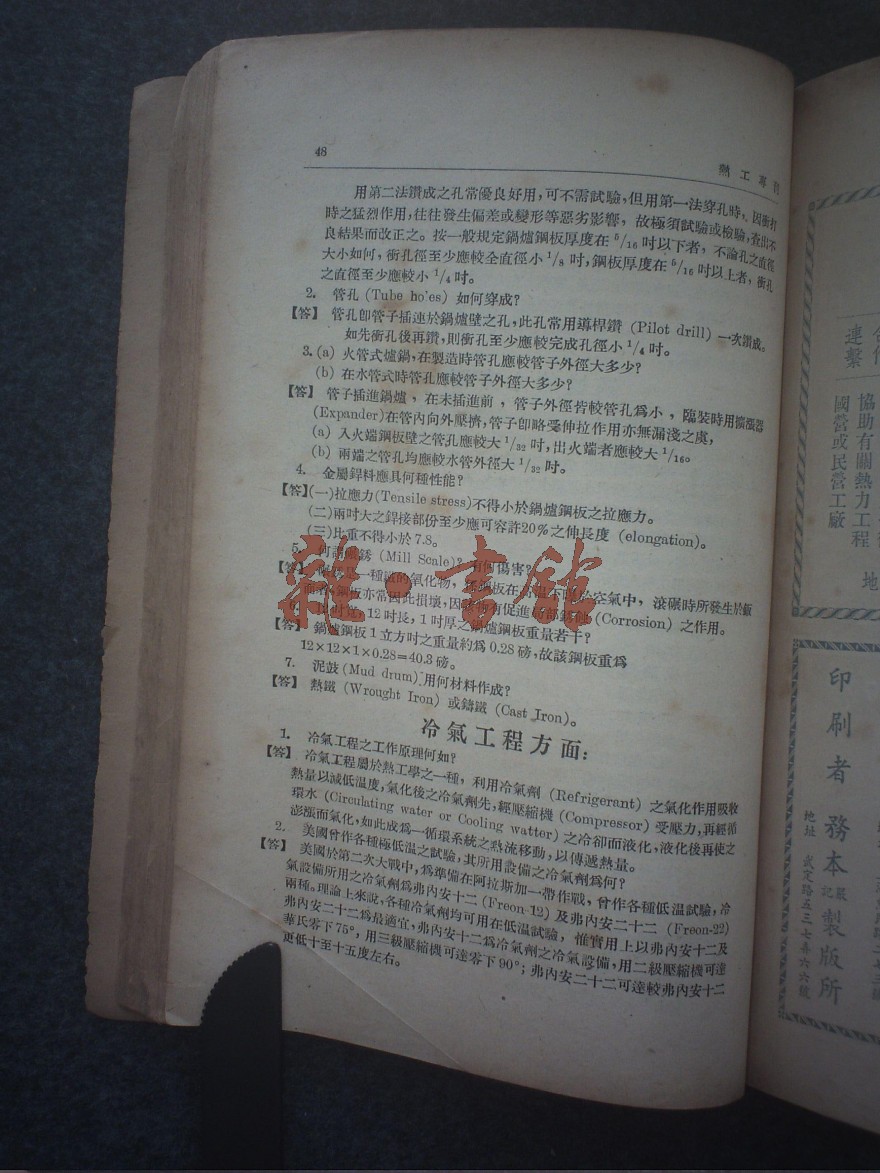 48
熱工專刊
用第二法鑽成之孔常優良好用,可不需試驗,但用第一法穿孔時,因衝打
時之猛烈作用,往往發生偏差或變形等惡劣影響,故極須試驗或檢驗,查出不
良結果而改正之。按一般規定鍋爐鋼板厚度在 5/16 吋以下者,不論孔之直徑
大小如何,衝孔徑至少應較全直徑小 1/8 吋,鋼板厚度在 5/16 吋以上者,衝孔
之直徑至少應較小 1/4 吋。
2. 管孔 (Tube ho'es) 如何穿成?
【答】 管孔卽管子插連於鍋爐壁之孔,此孔常用導桿鑽 (Pilot drill) 一次鑽成。
如先衝孔後再鑽,則衝孔至少應較完成孔徑小 1/4 吋。
3. (a) 火管式爐鍋,在製造時管孔應較管子外徑大多少?
(b) 在水管式時管孔應較管子外徑大多少?
【答】 管子插進鍋爐,在未插進前,管子外徑皆較管孔爲小,臨裝時用擴漲器
(Expander)在管內向外壓擠,管子卽略受伸拉作用亦無漏淺之虞,
(a) 入火端鋼板壁之管孔應較大 1/32 吋,出火端者應較大 1/16。
(b) 兩端之管孔均應較水管外徑大 1/32 吋。
4. 金屬銲料應具何種性能?
【答】(一)拉應力(Tensile stress)不得小於鍋爐鋼板之拉應力。
(二)兩吋大之銲接部份至少應可容許20%之伸長度 (elongation)。
(三)比重不得小於 7.8。
5. 何謂 銹 (Mill Scale)? 有何傷害?
【答】 一種鐵的氧化物, 鋼板在 空氣中,滾碾時所發生於鈑
鋼板亦常因此損壞,因 有促進 部 (Corrosion) 之作用。
吋寬,12吋長,1吋厚之鍋爐鋼板重量若干?
【答】 鍋爐鋼板1立方吋之重量約爲 0.28 磅,故該鋼板重爲
12×12×1×0.28=40.3 磅。
7. 泥鼓 (Mud drum) 用何材料作成?
【答】 熟鐵 (Wrought Iron) 或鑄鐵 (Cast Iron)。
冷氣工程方面:
1. 冷氣工程之工作原理何如?
【答】 冷氣工程屬於熱工學之一種,利用冷氣劑 (Refrigerant) 之氣化作用吸收
熱量以減低溫度,氣化後之冷氣劑先,經壓縮機 (Compressor) 受壓力,再經循
環水 (Circulating water or Cooling watter) 之冷卻而液化,液化後再使之
澎漲而氣化,如此成爲一循環系統之熱流移動,以傳遞熱量。
2. 美國曾作各種極低溫之試驗,其所用設備之冷氣劑爲何?
【答】 美國於第二次大戰中,爲準備在阿拉斯加一帶作戰,曾作各種低溫試驗,冷
氣設備所用之冷氣劑爲弗內安十二 (Freon-12) 及弗內安二十二 (Freon-22)
兩種。理論上來說,各種冷氣劑均可用在低溫試驗,惟實用上以弗內安十二及
弗內安二十二爲最適宜,弗內安十二爲冷氣劑之冷氣設備,用二級壓縮機可達
華氏零下75°,用三級壓縮機可達零下90°;弗內安二十二可達較弗內安十二
更低十至十五度左右。
龍·書館
連繫
協助有關熱力工程
國營或民營工廠
地
印刷者
務本
記
製版所
地址 武定路五三七弄六六號